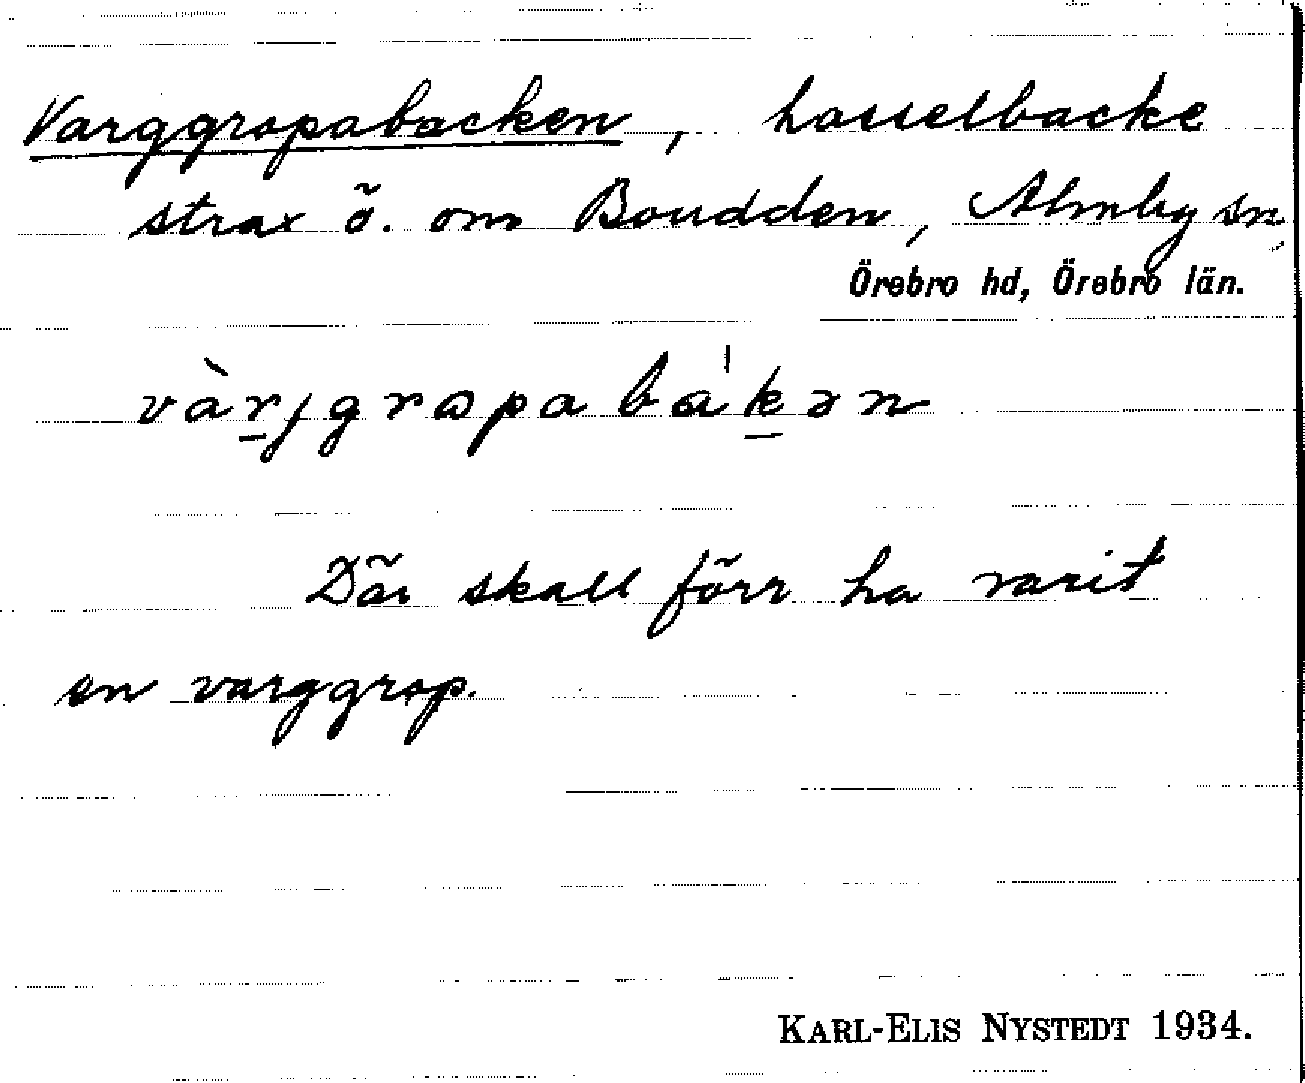 Varggropabacken, hasselbacke
strax ö. om Boudden, Almby sn,
Örebro hd, Örebro län.
vàr̲jgrɷpabá'k̲ən
Där skall förr ha varit
en varggrop.
KARL-ELIS NYSTEDT 1934.